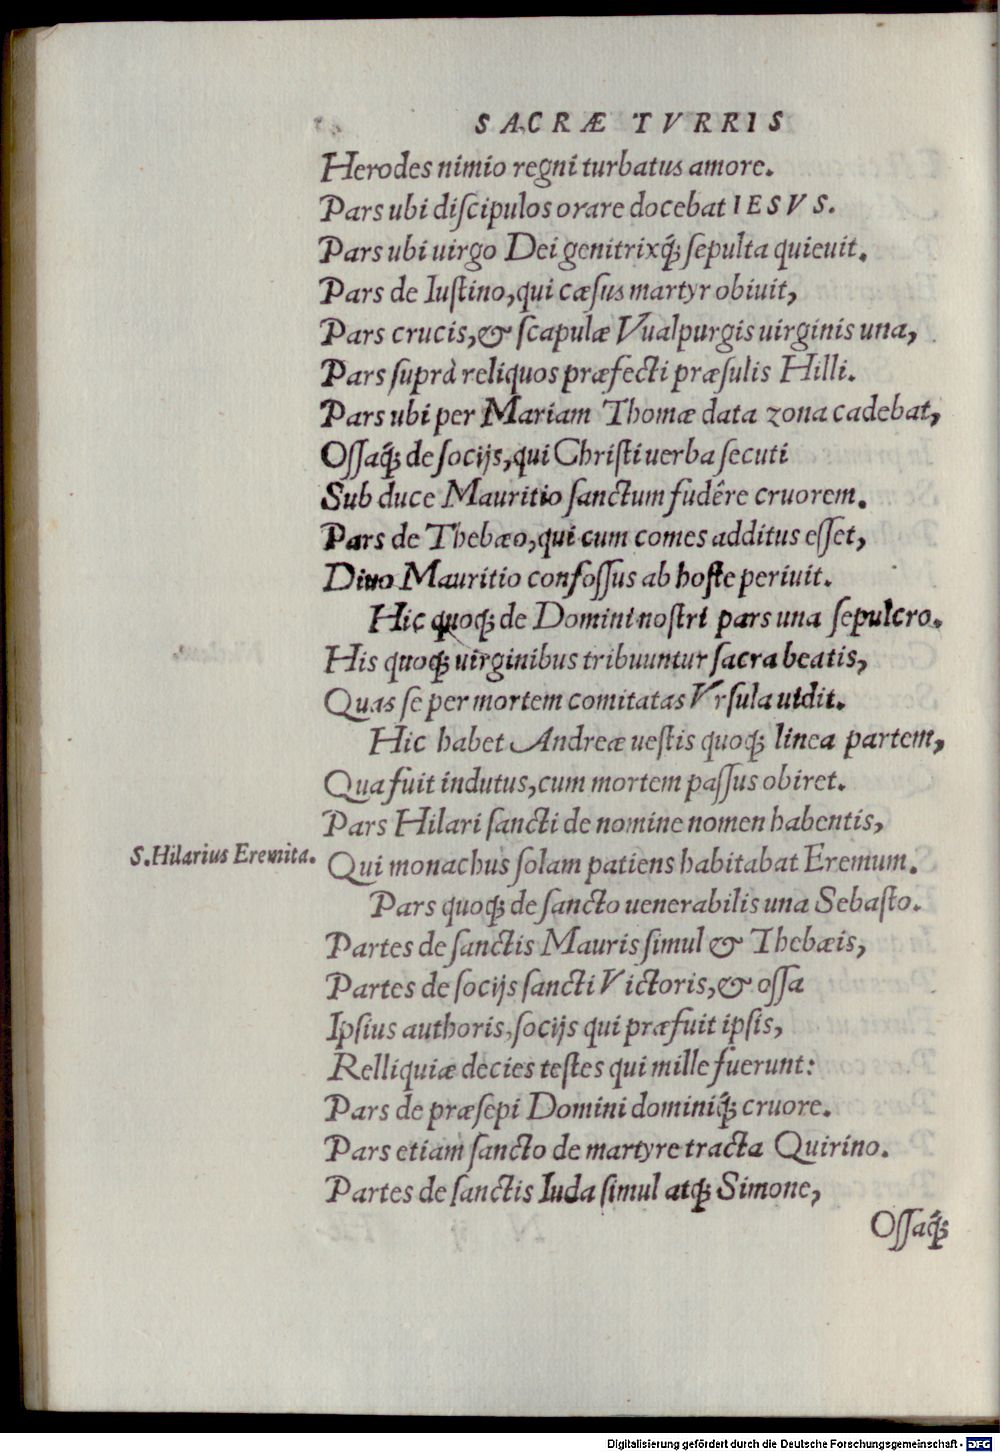 SACRÆ TVRRIS
Herodes nimio regni turbatus amore.
Pars ubi diſcipulos orare docebat IESVS.
Pars ubi uirgo Dei genitrixq́ꝫ ſepulta quieuit.
Pars de Iuſtino, qui cæſus martyr obiuit,
Pars crucis, & ſcapulæ Vualpurgis uirginis una,
Pars ſuprà reliquos præfecti præſulis Hilli.
Pars ubi per Mariam Thomæ data zona cadebat,
Oſſaq́ꝫ de ſocijs, qui Chriſti uerba ſecuti
Sub duce Mauritio ſanctum fudêre cruorem.
Pars de Thebæo, qui cum comes additus eſſet,
Diuo Mauritio confoſſus ab hoſte periuit.
Hic quoqꝫ de Domini noſtri pars una ſepulcro.
His quoqꝫ uirginibus tribuuntur ſacra beatis,
Quas ſe per mortem comitatas Vrſula uidit.
Hic habet Andreæ ueſtis quoqꝫ linea partem,
Qua fuit indutus, cum mortem paſſus obiret.
Pars Hilari ſancti de nomine nomen habentis,
S. Hilarius Eremita.
Qui monachus ſolam patiens habitabat Eremum.
Pars quoqꝫ de ſancto uenerabilis una Sebaſto.
Partes de ſanctis Mauris ſimul & Thebæis,
Partes de ſocijs ſancti Victoris, & oſſa
Ipſius authoris, ſocijs qui præfuit ipſis,
Relliquiæ decies teſtes qui mille fuerunt:
Pars de præſepi Domini dominiq́ꝫ cruore.
Pars etiam ſancto de martyre tracta Quirino.
Partes de ſanctis Iuda ſimul atqꝫ Simone,
Oſſaq́ꝫ
Digitalisierung gefördert durch die Deutsche Forschungsgemeinschaft - DFG